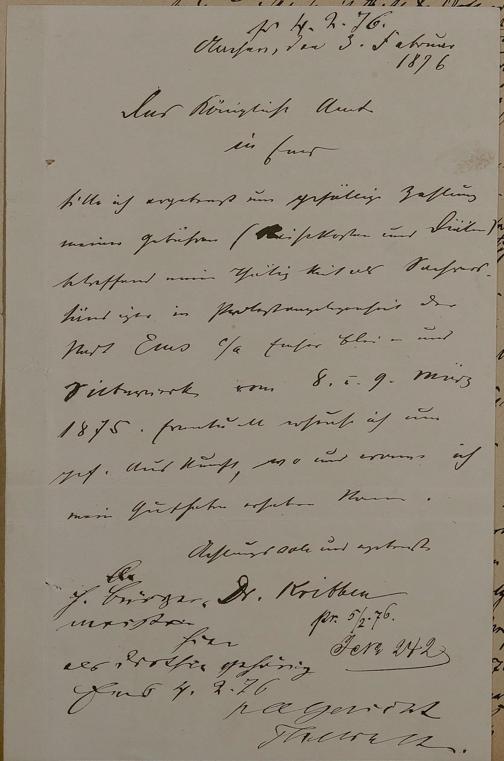 pr 4. 2. 76.
Aachen, den 3. Februar
1876
Das Königliche Amt
in Ems
bitte ich ergebenst um gefällige Zahlung
meiner Gebühren (Reisekosten und Diäten)
betreffend mein Thätigkeit als Sachvers-
tändiger in der
Stadt Ems c/a Emser Blei- und
Silberwerk vom 8. u. 9. März
1875. Eventuell ersuche ich um
gef. Auskunft, wo und wann ich
mein Guthaben erheben kann.
Achtungsvoll und ergebenst
Dr. Kribben
Bürger-
meister
hier
als dorthin gehörig
Ems 4. 2. 76
pr. 5/2. 76.
242